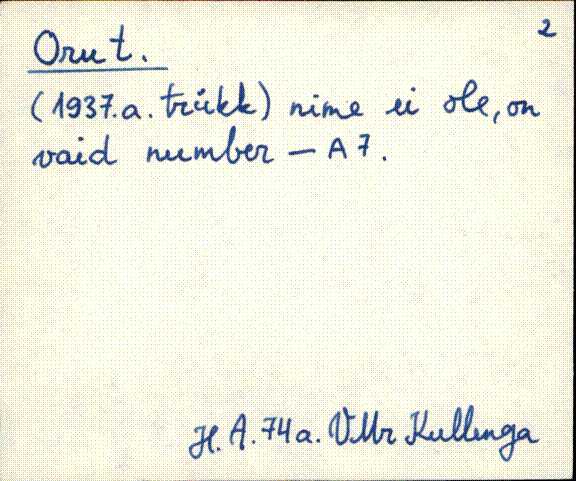 2
Oru t.
(1937.a. trükk) nime ei ole, on
vaid number – A 7.
H. A. 74 a. VMr Kullenga